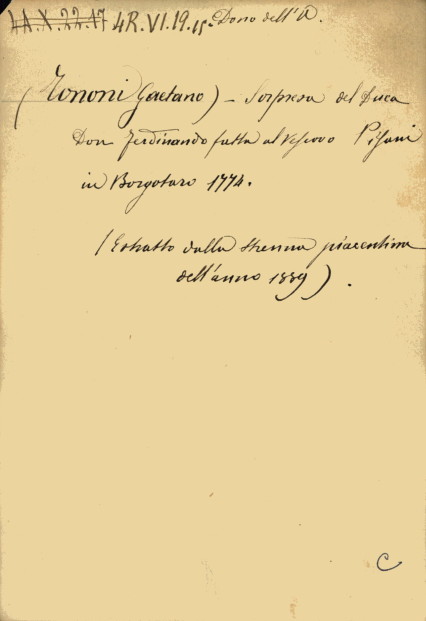 4A.X.22.17 4R.VI.19.15 Dono dell'A.
(Tononi Gaetano) - Sorpresa del Duca
Don Ferdinando fatta al Vescovo Pisani
in Borgotaro 1774.
(Estratto dalla strenna piacentina
dell'anno 1889).
C